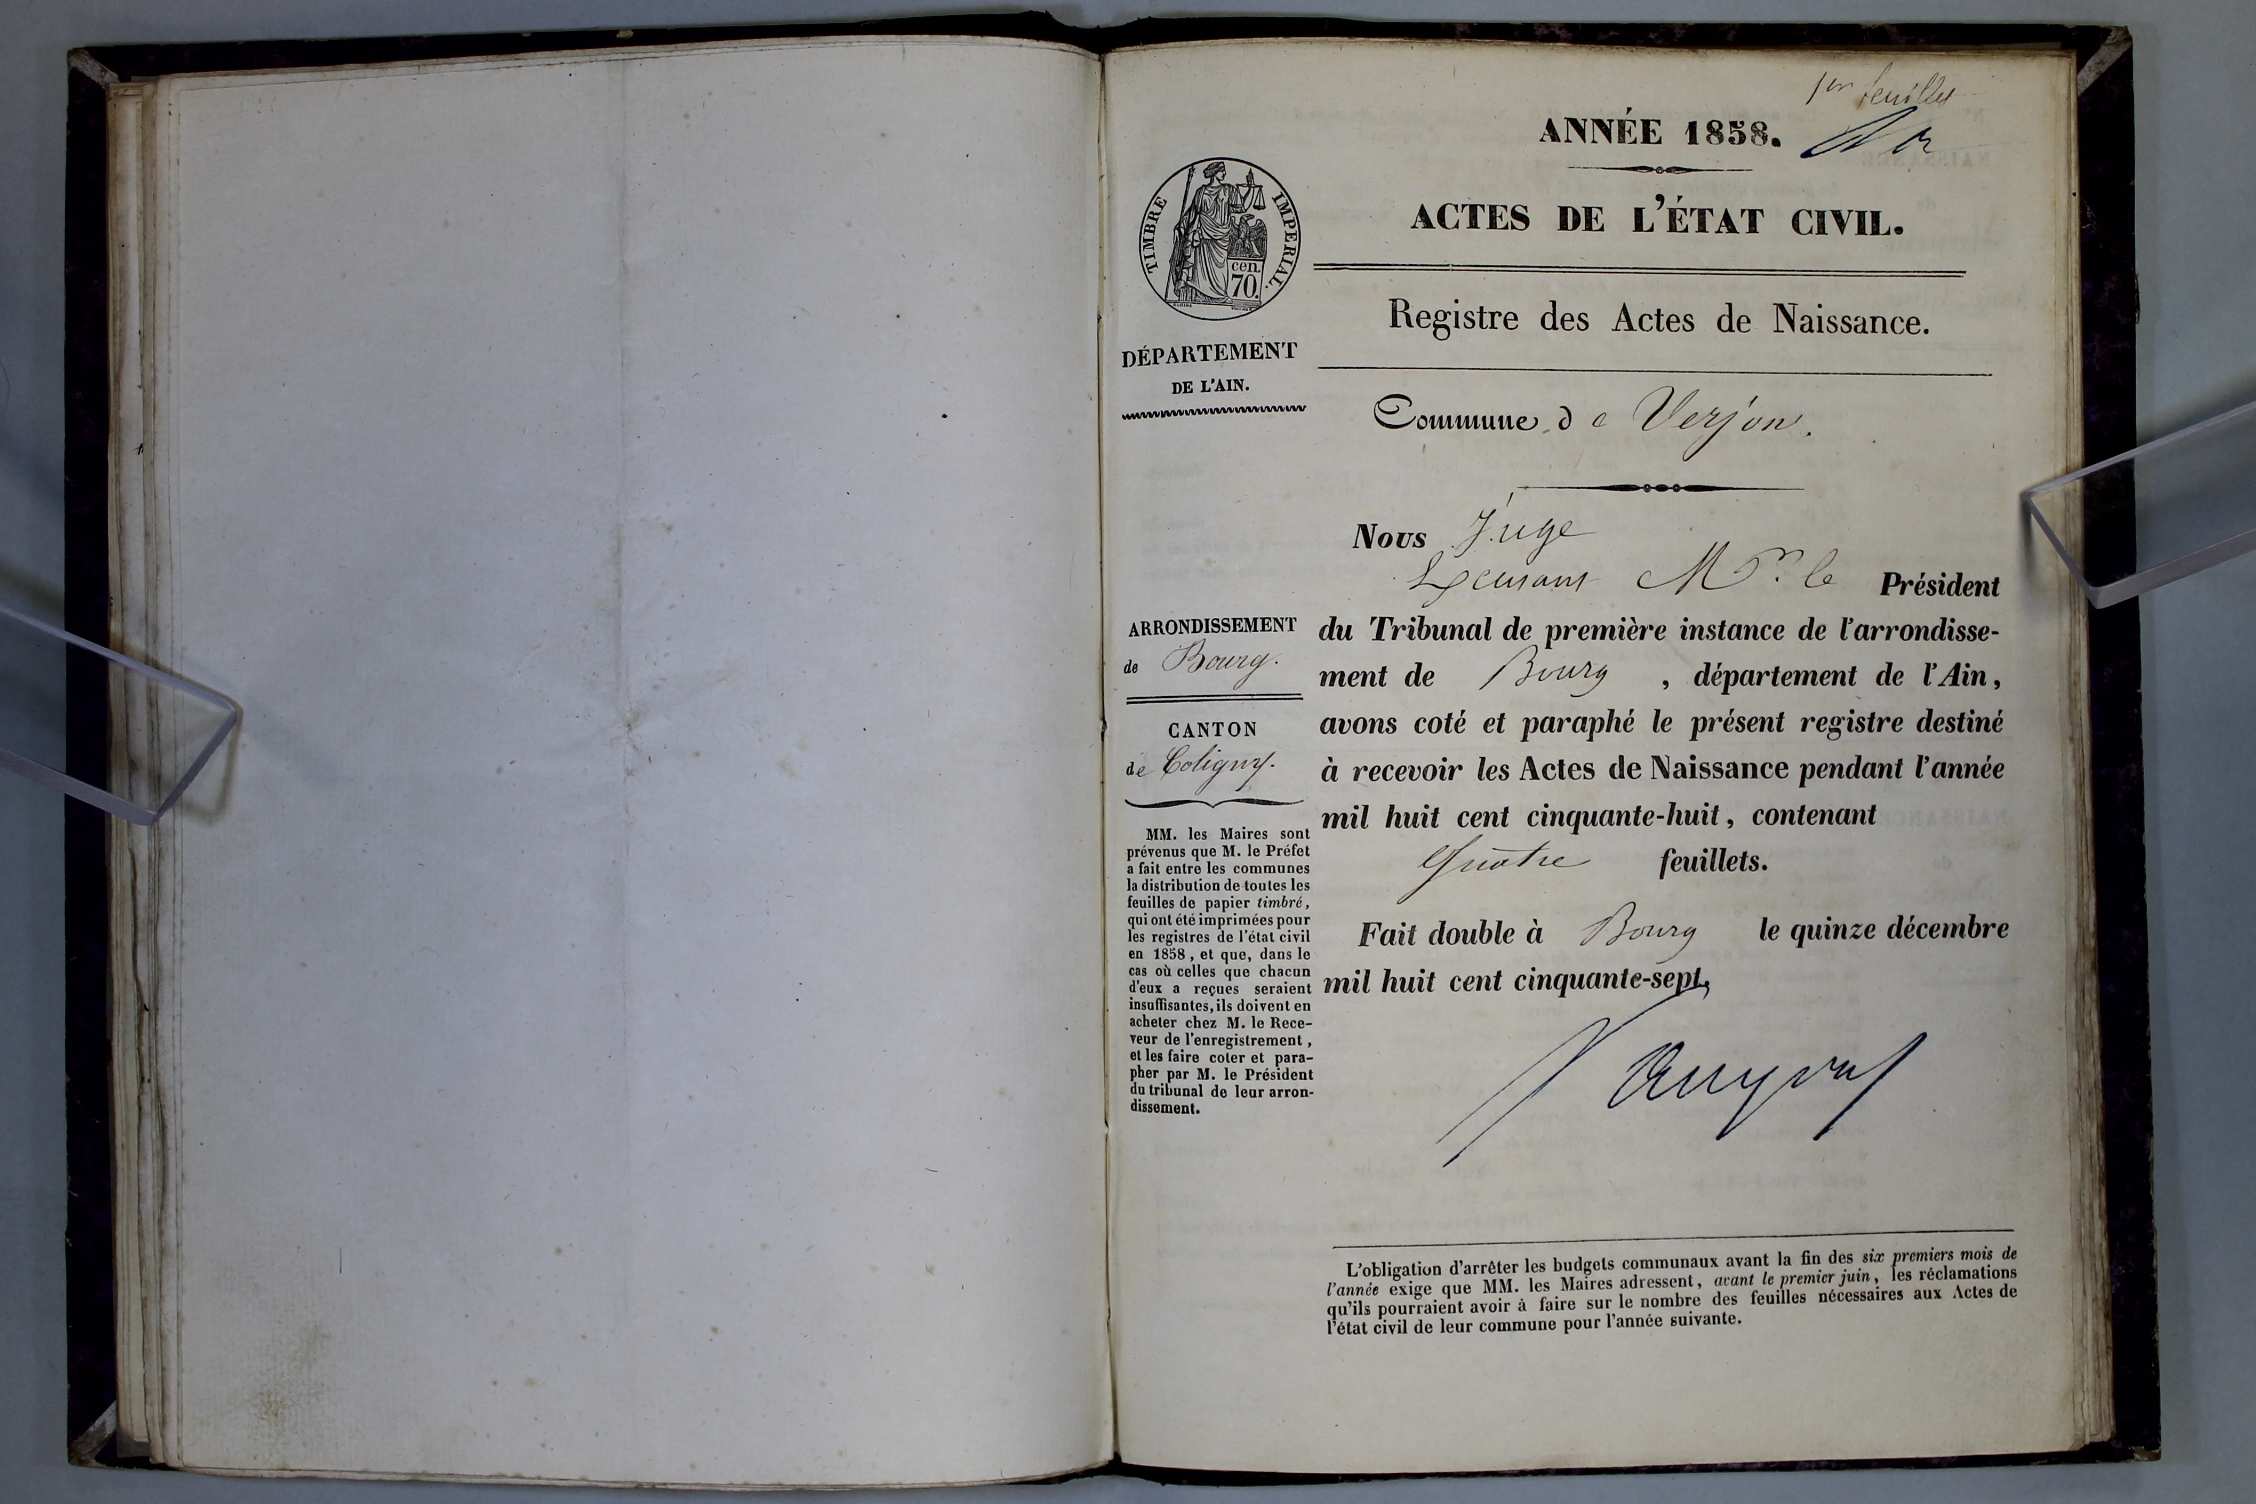 1er feuillet
ANNÉE 1858.
TIMBRE IMPERIAL.
cen.
70.
ACTES DE L'ÉTAT CIVIL.
Registre des Actes de Naissance.
DÉPARTEMENT
DE L'AIN.
Commune de Verjon.
Nous Juge
Mr. le Président
du Tribunal de première instance de l'arrondisse-
ment de Bourg, département de l'Ain,
avons coté et paraphé le présent registre destiné
à recevoir les Actes de Naissance pendant l'année
mil huit cent cinquante-huit, contenant
Quatre feuillets.
Fait double à Bourg le quinze décembre
mil huit cent cinquante-sept,
ARRONDISSEMENT
de Bourg.
CANTON
de Coligny.
MM. les Maires sont
prévenus que M. le Préfet
a fait entre les communes
la distribution de toutes les
feuilles de papier timbré,
qui ont été imprimées pour
les registres de l'état civil
en 1858, et que, dans le
cas où celles que chacun
d'eux a reçues seraient
insuffisantes, ils doivent en
acheter chez M. le Rece-
veur de l'enregistrement,
et les faire coter et para-
pher par M. le Président
du tribunal de leur arron-
dissement.
L'obligation d'arrêter les budgets communaux avant la fin des six premiers mois de
l'année exige que MM. les Maires adressent, avant le premier juin, les réclamations
qu'ils pourraient avoir à faire sur le nombre des feuilles nécessaires aux Actes de
l'état civil de leur commune pour l'année suivante.